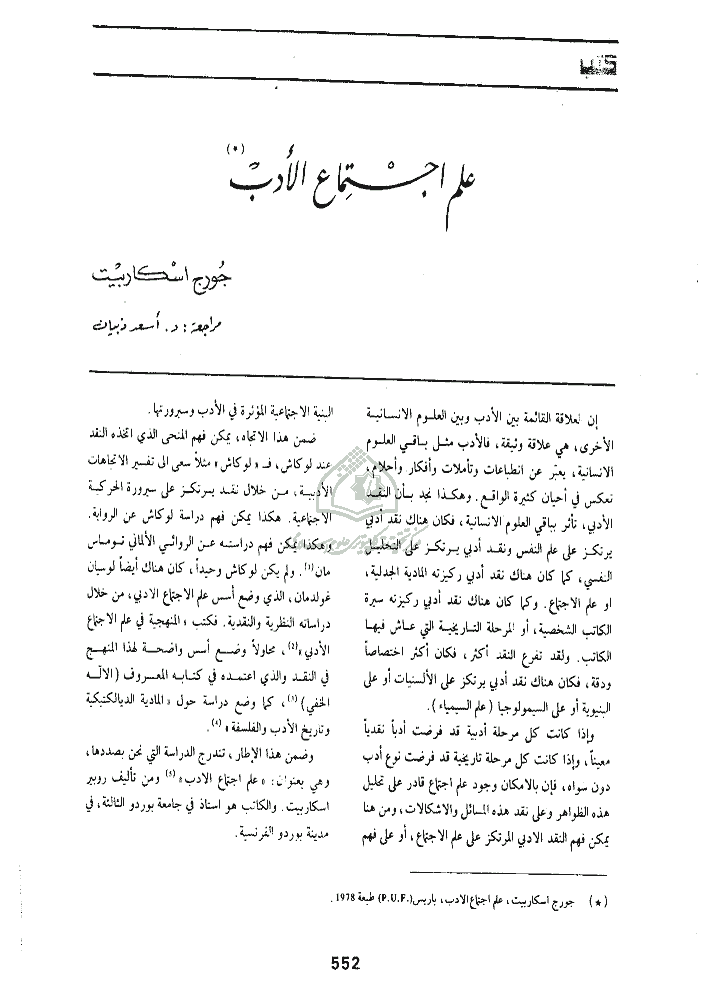 كتب
علم اجتماع الأدب (*)
جورج اسكاربيت
مراجعة: د. أسعد ذبيان
إن لعلاقة القائمة بين الأدب وبين العلوم الانسانية
الأخرى، هي علاقة وثيقة، فالأدب مثل باقي العلوم
الانسانية، يعبّر عن انطباعات وتأملات وأفكار وأحلام،
تعكس في أحيان كثيرة الواقع. وهكذا نجد بأن النقد
الأدبي، تأثر بباقي العلوم الانسانية، فكان هناك نقد أدبي
يرتكز على علم النفس ونقد أدبي يرتكز على التحليل
النفسي، كما كان هناك نقد أدبي ركيزته المادية الجدلية،
او علم الاجتماع. وكما كان هناك نقد أدبي ركيزته سيرة
الكاتب الشخصية، أو المرحلة التاريخية التي عاش فيها
الكاتب. ولقد تفرع النقد أكثر، فكان أكثر اختصاصاً
ودقة، فكان هناك نقد أدبي يرتكز على الألسنيات أو على
البنيوية أو على السيمولوجيا (علم السيمياء).
وإذا كانت كل مرحلة أدبية قد فرضت أدباً نقدياً
معيناً، وإذا كانت كل مرحلة تاريخية قد فرضت نوع أدب
دون سواه، فإن بالامكان وجود علم اجتماع قادر على تحليل
هذه الظواهر وعلى نقد هذه المسائل والاشكالات، ومن هنا
يمكن فهم النقد الادبي المرتكز على علم الاجتماع، أو على فهم
البنية الاجتماعية المؤثرة في الأدب وسيرورتها.
ضمن هذا الاتجاه، يمكن فهم المنحى الذي اتخذه النقد
عند لوكاش، فـ «لوكاش» مثلاً سعى الى تفسير الاتجاهات
الأدبية، من خلال نقد يرتكز على سيرورة الحركية
الاجتماعية. هكذا يمكن فهم دراسة لوكاش عن الرواية.
وهكذا يمكن فهم دراسته عن الروائي الألماني توماس
مان(١). ولم يكن لوكاش وحيداً، كان هناك أيضاً لوسيان
غولدمان، الذي وضع أسس علم الاجتماع الادبي، من خلال
دراساته النظرية والنقدية. فكتب «المنهجية في علم الاجتماع
الأدبي»(٢). محاولاً وضع أسس واضحة لهذا المنهج
في النقد والذي اعتمده في كتابه المعروف (الالٓه
الخفي)(٣)، كما وضع دراسة حول «المادية الديالكتيكية
وتاريخ الأدب والفلسفة»(٤).
وضمن هذا الإطار، تندرج الدراسة التي نحن بصددها،
وهي بعنوان: «علم اجتماع الادب»(٥) ومن تأليف روبير
اسكاربيت. والكاتب هو استاذ في جامعة بوردو الثالثة، في
مدينة بوردو الفرنسية.
(*) جورج اسكاربيت، علم اجتماع الادب، باريس (P.U.F.) طبعة 1978.
552